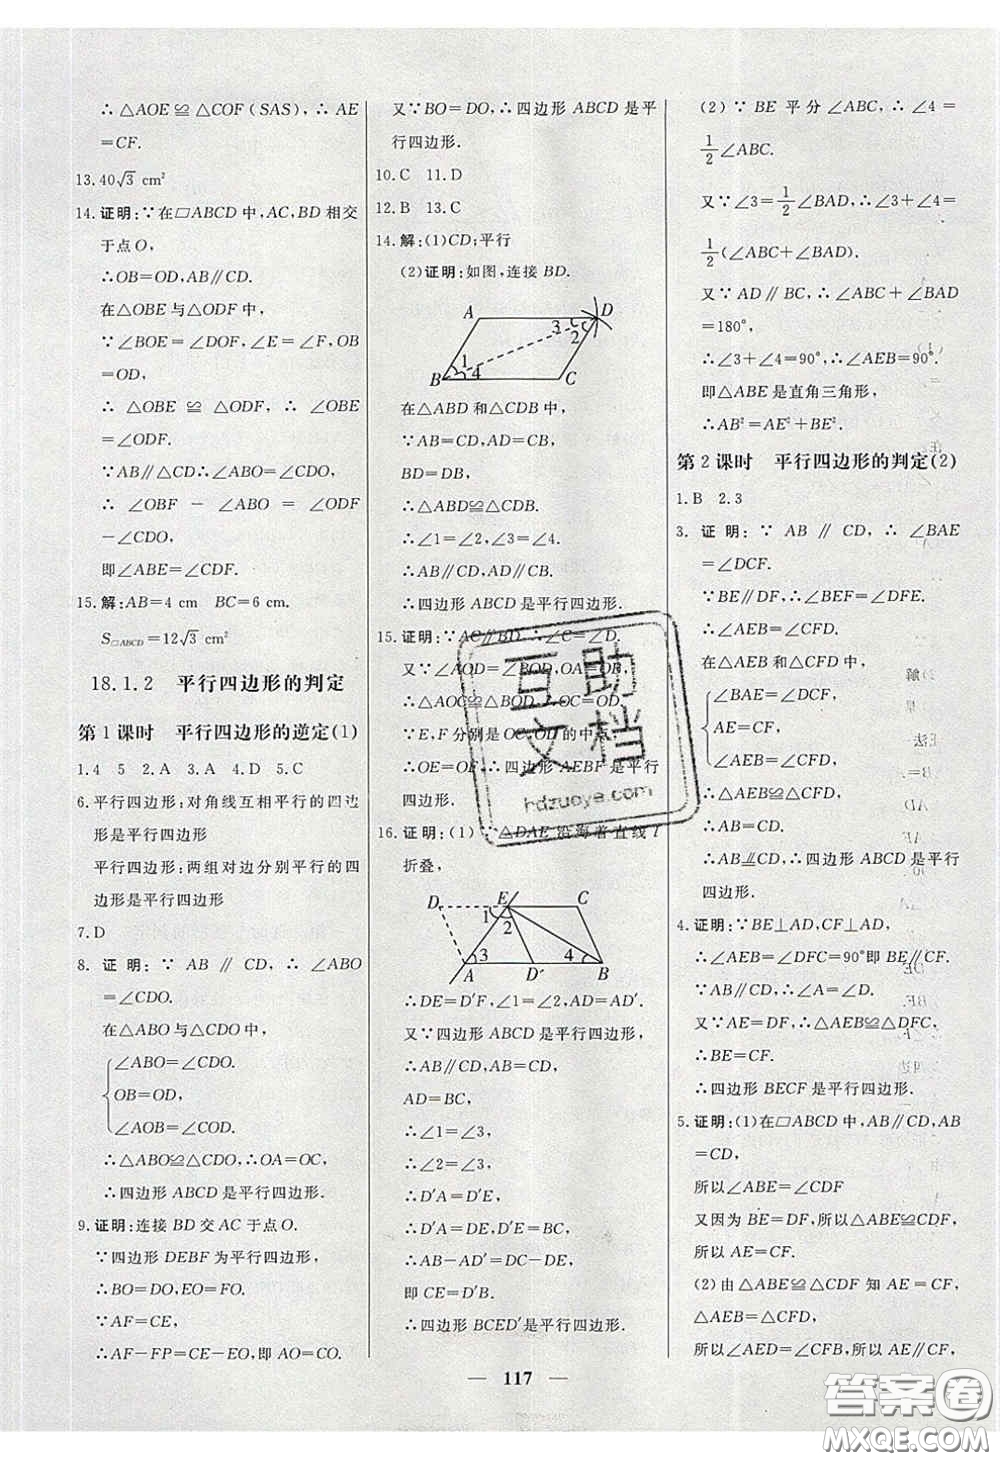 ∴△AOE≌△COF(SAS),∴AE
=CF.
13.40√3 cm²
14.证明:∵在▱ABCD中,AC,BD相交
于点O,
∴OB=OD,AB∥CD.
在△OBE与△ODF中,
∵∠BOE=∠DOF,∠E=∠F,OB
=OD,
∴△OBE≌△ODF,∴∠OBE
=∠ODF.
∵AB∥CD∴∠ABO=∠CDO,
∴∠OBF-∠ABO=∠ODF
-∠CDO,
即∠ABE=∠CDF.
15.解:AB=4 cm BC=6 cm.
S▱ABCD=12√3 cm²
18.1.2 平行四边形的判定
第1课时 平行四边形的逆定(1)
1.4 5 2.A 3.A 4.D 5.C
6.平行四边形:对角线互相平行的四边
形是平行四边形
平行四边形:两组对边分别平行的四
边形是平行四边形
7.D
8.证明:∵AB∥CD,∴∠ABO
=∠CDO.
在△ABO与△CDO中,
∠ABO=∠CDO.
OB=OD,
∠AOB=∠COD.
∴△ABO≌△CDO,∴OA=OC,
∴四边形ABCD是平行四边形.
9.证明:连接BD交AC于点O.
∵四边形DEBF为平行四边形,
∴BO=DO,EO=FO.
∵AF=CE,
∴AF-FP=CE-EO,即AO=CO.
又∵BO=DO,∴四边形ABCD是平
行四边形.
10.C 11.D
12.B 13.C
14.解:(1)CD;平行
(2)证明:如图,连接BD.
A D
3
2
1
4
B C
在△ABD和△CDB中,
∵AB=CD,AD=CB,
BD=BD,
∴△ABD≌△CDB.
∴∠1=∠2,∠3=∠4.
∴AB∥CD,AD∥CB.
∴四边形ABCD是平行四边形.
15.证明:∵AC∥BD,∴∠C=∠D.
又∵∠AOD=∠BOD,OA=OB,
∴△AOC≌△BOD,∴OC=OD.
∵E,F分别是OC,OD的中点,
∴OE=OF,∴四边形AEBF是平行
四边形.
16.证明:(1)∵△DAE沿海着直线l
折叠,
D E C
1
2
3 4
A D′ B
∴DE=D′F,∠1=∠2,AD=AD′.
又∵四边形ABCD是平行四边形,
∴AB∥CD,AB=CD,
AD=BC,
∴∠1=∠3,
∴∠2=∠3,
∴D′A=D′E,
∴D′A=DE,D′E=BC,
∴AB-AD′=DC-DE,
即CE=D′B.
∴四边形BCED′是平行四边形.
(2)∵BE平分∠ABC,∴∠4=
1/2∠ABC.
又∵∠3=1/2∠BAD,∴∠3+∠4=
1/2(∠ABC+∠BAD).
又∵AD∥BC,∴∠ABC+∠BAD
=180°,
∴∠3+∠4=90°,∴∠AEB=90°.
即△ABE是直角三角形,
∴AB²=AE²+BE².
第2课时 平行四边形的判定(2)
1.B 2.3
3.证明:∵AB∥CD,∴∠BAE
=∠DCF.
∵BE∥DF,∴∠BEF=∠DFE.
∴∠AEB=∠CFD.
在△AEB和△CFD中,
∠BAE=∠DCF,
AE=CF,
∠AEB=∠CFD,
∴△AEB≌△CFD.
∴AB=CD.
∴AB∥CD,∴四边形ABCD是平行
四边形.
4.证明:∵BE⊥AD,CF⊥AD,
∴∠AEB=∠DFC=90°即BE∥CF.
∵AB∥CD,∴∠A=∠D.
又∵AE=DF,∴△AEB≌△DFC,
∴BE=CF.
∴四边形BECF是平行四边形.
5.证明:(1)在▱ABCD中,AB∥CD,AB
=CD,
所以∠ABE=∠CDF
又因为BE=DF,所以△ABE≌△CDF,
所以AE=CF.
(2)由△ABE≌△CDF知AE=CF,
∠AEB=∠CFD,
所以∠AED=∠CFB,所以AE∥CF,
117
互助
文档
hdzuoye.com
答案卷
MXQE.COM